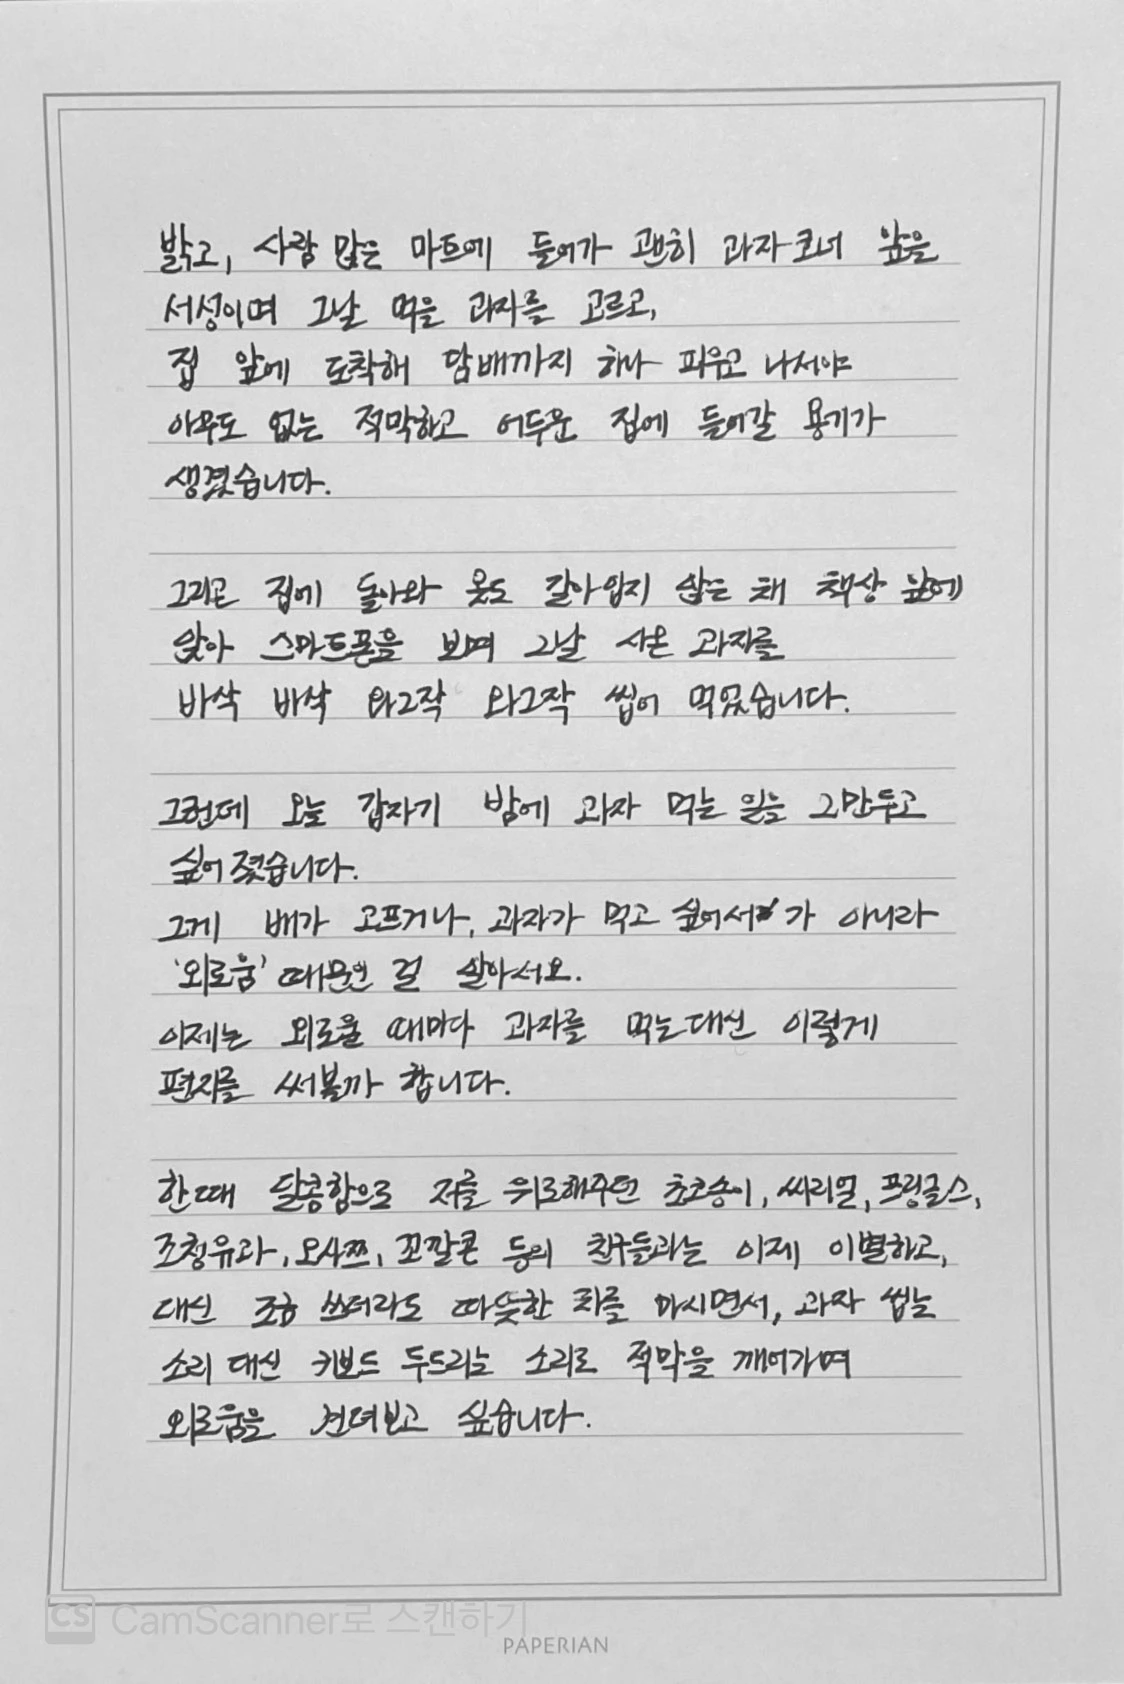 밝고, 사람 많은 마트에 들어가 괜히 과자코너 앞을
서성이며 그날 먹을 과자를 고르고,
집 앞에 도착해 담배까지 하나 피우고 나서야
아무도 없는 적막하고 어두운 집에 들어갈 용기가
생겼습니다.
그리곤 집에 돌아와 옷도 갈아입지 않은 채 책상 앞에
앉아 스마트폰을 보며 그날 사온 과자를
바삭 바삭 와그작 와그작 씹어 먹었습니다.
그런데 오늘 갑자기 밤에 과자 먹는 일을 그만두고
싶어졌습니다.
그게 배가 고프거나, 과자가 먹고 싶어서가 아니라
'외로움' 때문인 걸 알아서요.
이제는 외로울 때마다 과자를 먹는대신 이렇게
편지를 써볼까 합니다.
한때 달콤함으로 저를 위로해주던 초코송이, 씨리얼, 프링글스,
조청유과, 오사쯔, 꼬깔콘 등의 친구들과는 이제 이별하고,
대신 조금 쓰더라도 따뜻한 차를 마시면서, 과자 씹는
소리 대신 키보드 두드리는 소리로 적막을 깨어가며
외로움을 견뎌보고 싶습니다.
CS CamScanner로 스캔하기
PAPERIAN